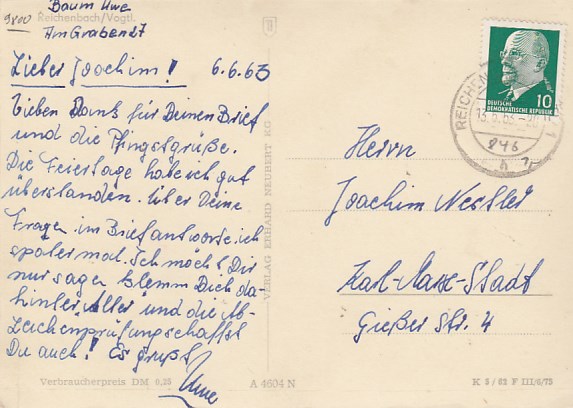 Baum Uwe
9800 Reichenbach/Vogtl.
Am Graben 27
Lieber Joachim! 6.6.63
Lieben Dank für Deinen Brief
und die Pfingstgrüße.
Die Feiertage habe ich gut
überstanden. Über Deine
Fragen im Brief antworte ich
später mal. Ich möcht Dir
nur sagen klemm Dich da-
hinter, Alter und die Ab-
Zeichenprüfung schaffst
Du auch! Es grüßt
Uwe
VERLAG ERHARD NEUBERT KG
DEUTSCHE
DEMOKRATISCHE REPUBLIK
10
REICHEN
1
Herrn
Joachim Nestler
Karl-Marx-Stadt
Gießer Str. 4
Verbraucherpreis DM 0,25 A 4604 N K 5/62 F III/6/75